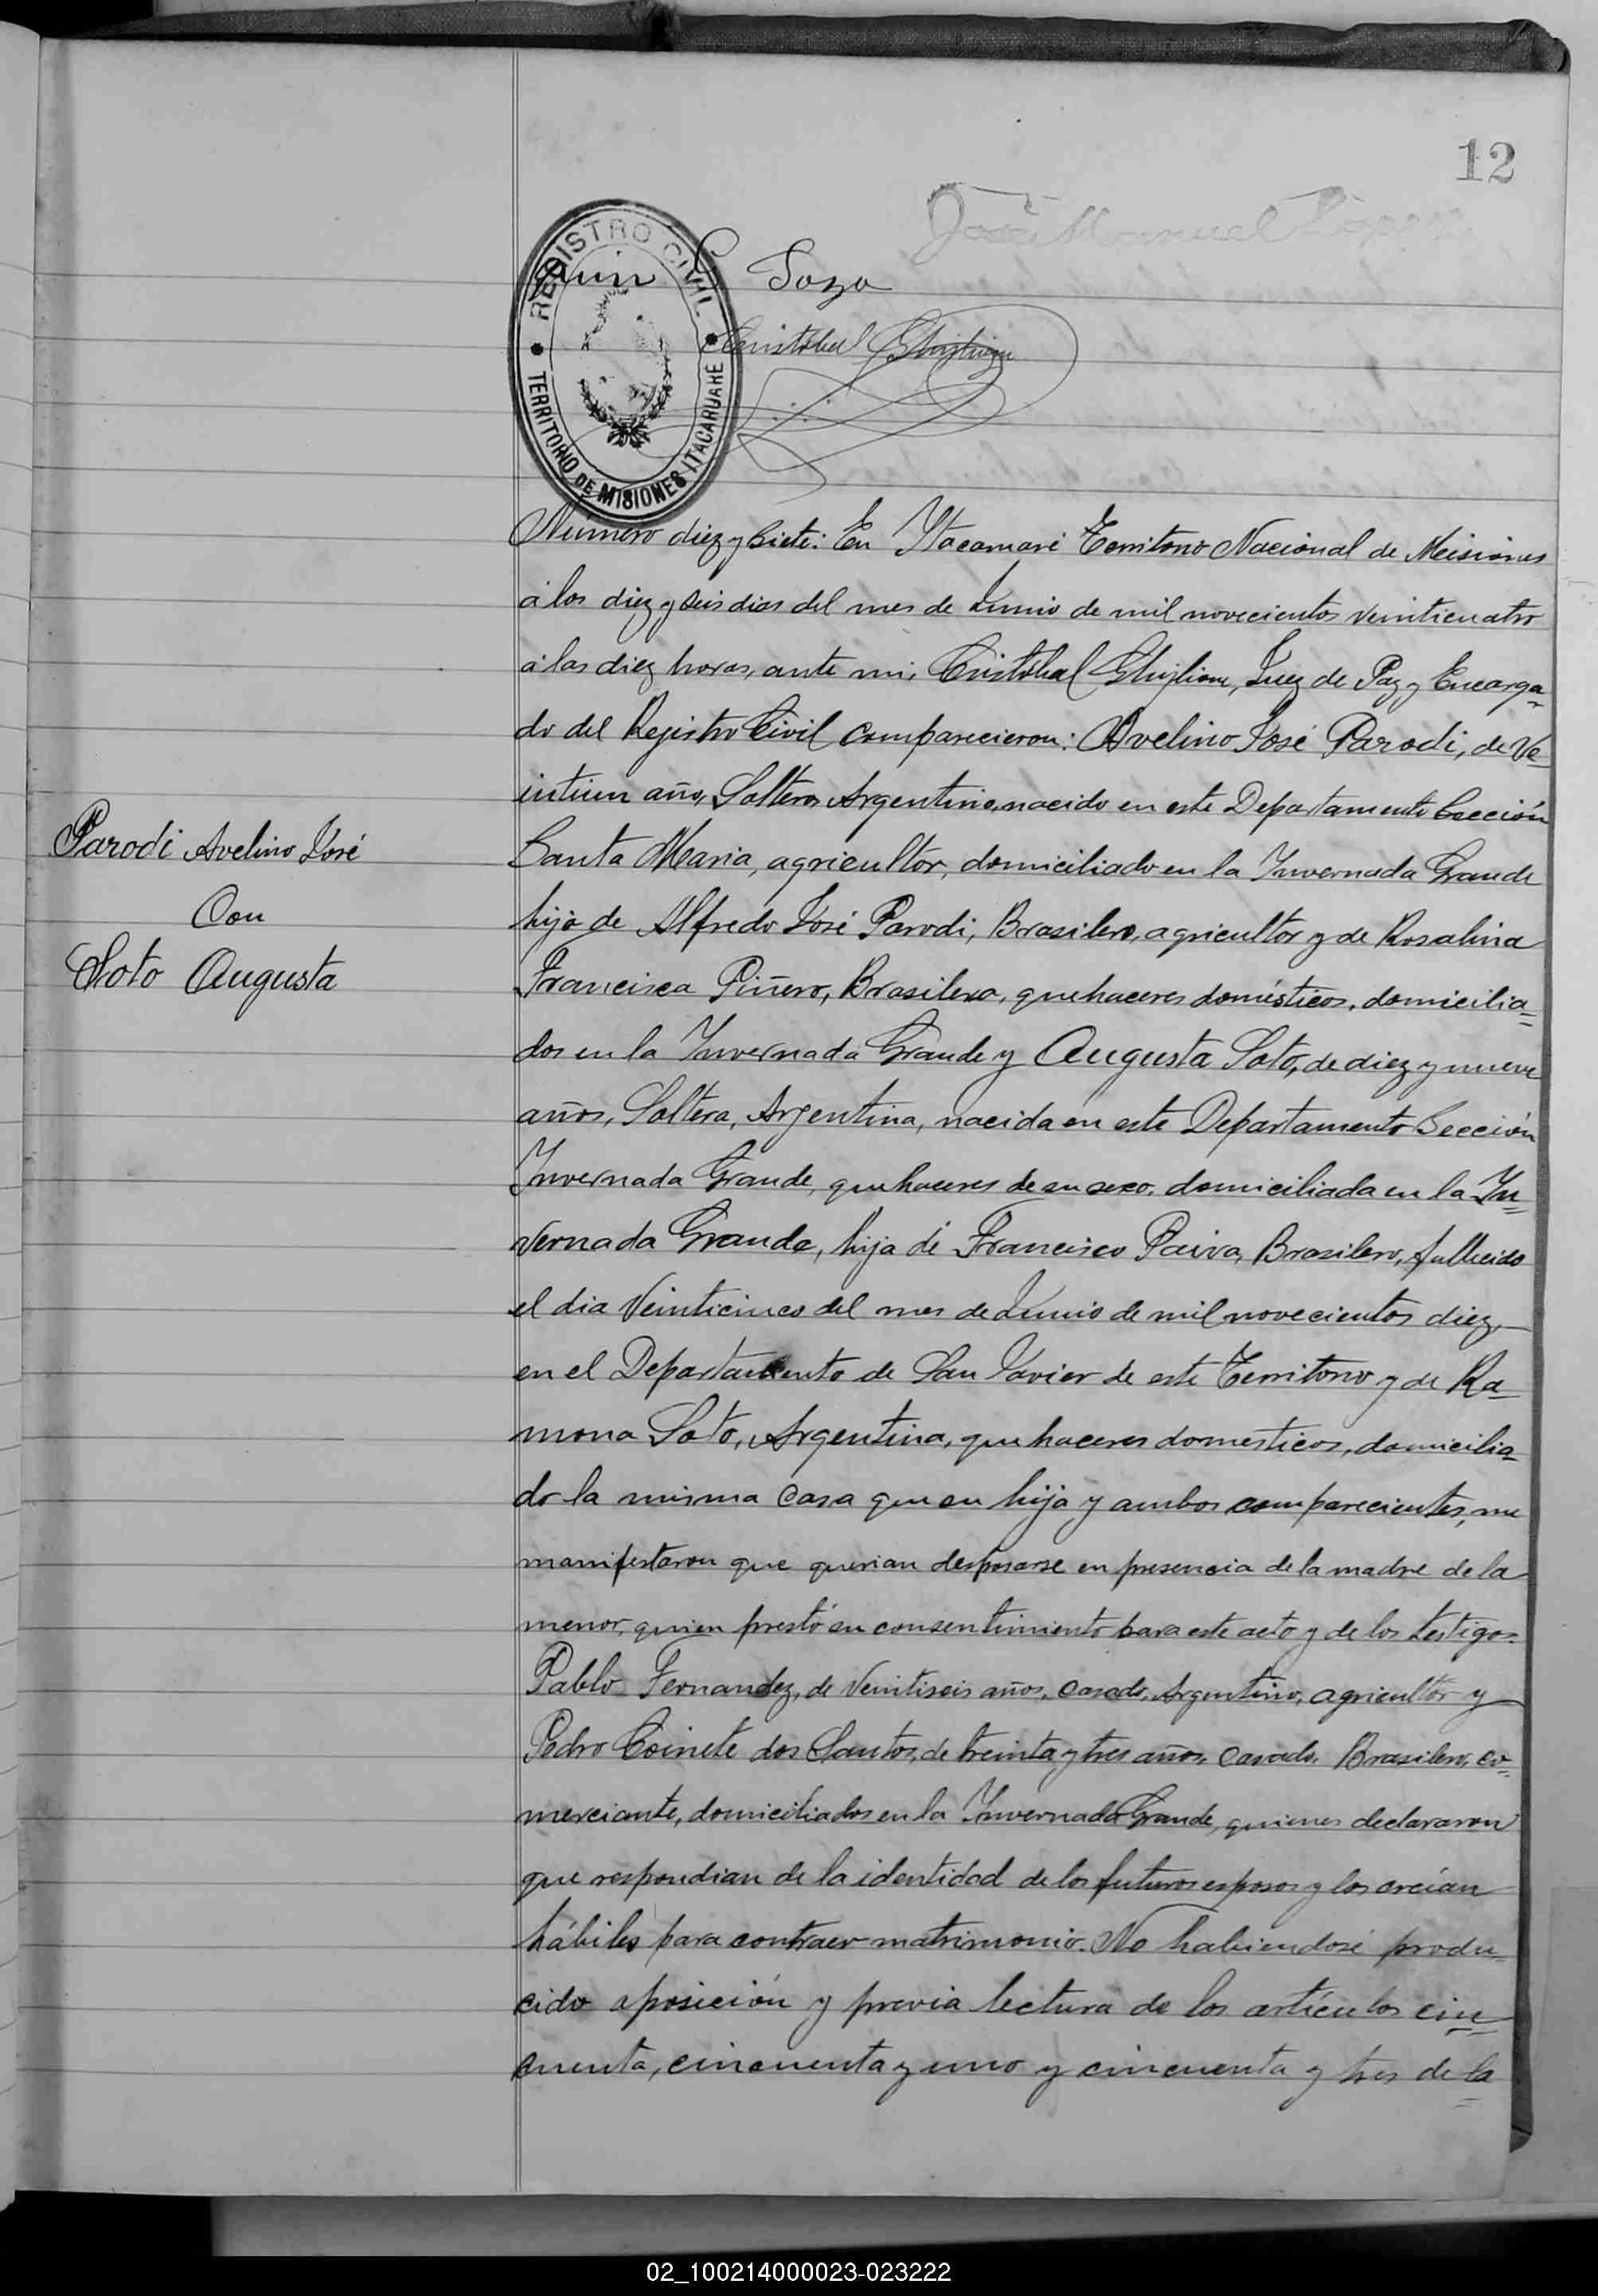 12
José Manuel
Soza
REGISTRO CIVIL
TERRITORIO DE MISIONES ITACARUARE
Cristóbal Ghiglione
Número diez y Siete: En Ytacaruaré Territorio Nacional de Misiones
á los diez y seis dias del mes de Junio de mil novecientos veinticuatro
á las diez horas, ante mi, Cristóbal Ghiglione, Juez de Paz y Encarga=
do del Registro Civil comparecieron: Avelino José Parodi, de Ve=
intiun año, Soltero, Argentino, nacido en este Departamento Sección
Santa Maria, agricultor, domiciliado en la Invernada Grande
hijo de Alfredo José Parodi, Brasilero, agricultor y de Rosalina
Francisca Piñero, Brasilera, quehaceres domésticos, domicilia=
dos en la Invernada Grande y Augusta Soto, de diez y nueve
años, Soltera, Argentina, nacida en este Departamento Sección
Invernada Grande, quehaceres de su sexo, domiciliada en la In=
vernada Grande, hija de Francisco Paiva, Brasilero, fallecido
el dia Veinticinco del mes de Junio de mil novecientos diez,
en el Departamento de San Javier de este Territorio y de Ra=
mona Soto, Argentina, quehaceres domesticos, domicilia=
do la misma Casa que su hija y ambos comparecientes, me
manifestaron que querian desposarse en presencia de la madre de la
menor, quien prestó su consentimiento para este acto y de los testigos
Pablo Fernandez, de Veintiseis años, Casado, Argentino, agricultor y
Pedro dos Santos, de treinta y tres años, Casado, Brasilero, co=
merciante, domiciliados en la Invernada Grande, quienes declararon
que respondian de la identidad de los futuros esposos y los creían
hábiles para contraer matrimonio. No habiendosé produ=
cido oposición y previa lectura de los artículos cin=
cuenta, cincuenta y uno y cincuenta y tres de la
Parodi Avelino José
Con
Soto Augusta
02_100214000023-023222